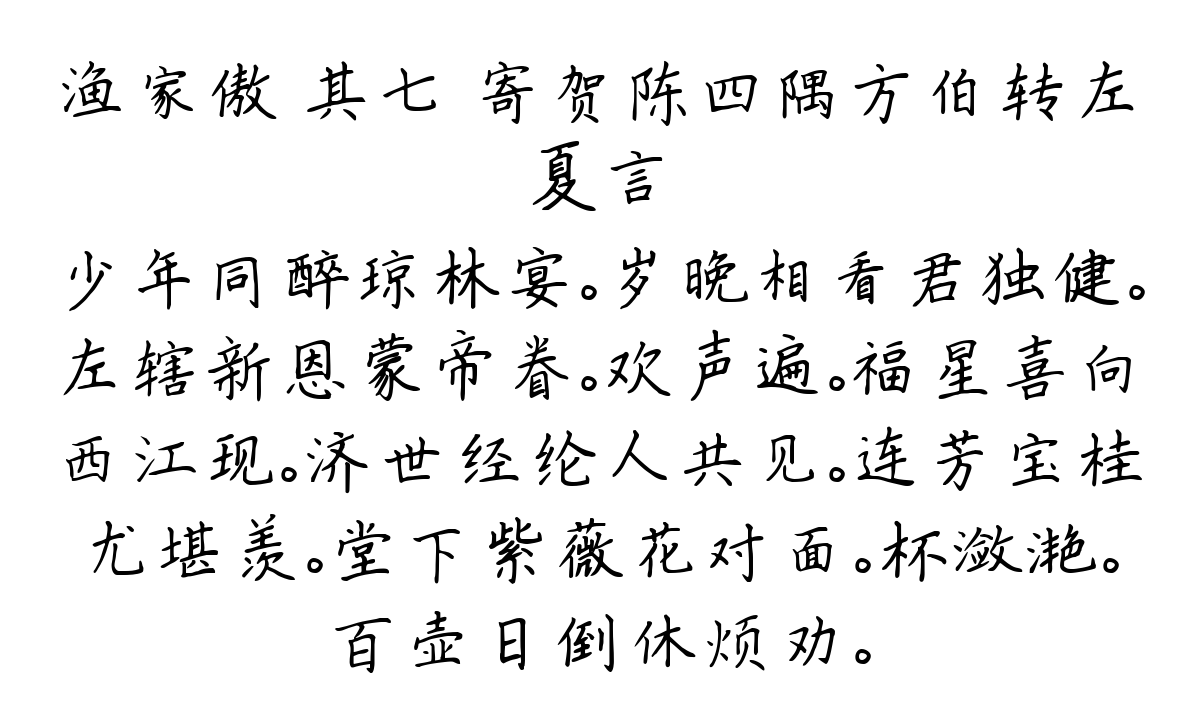 渔家傲 其七 寄贺陈四隅方伯转左
夏言
少年同醉琼林宴。岁晚相看君独健。
左辖新恩蒙帝眷。欢声遍。福星喜向
西江现。济世经纶人共见。连芳宝桂
尤堪羡。堂下紫薇花对面。杯潋滟。
百壶日倒休烦劝。